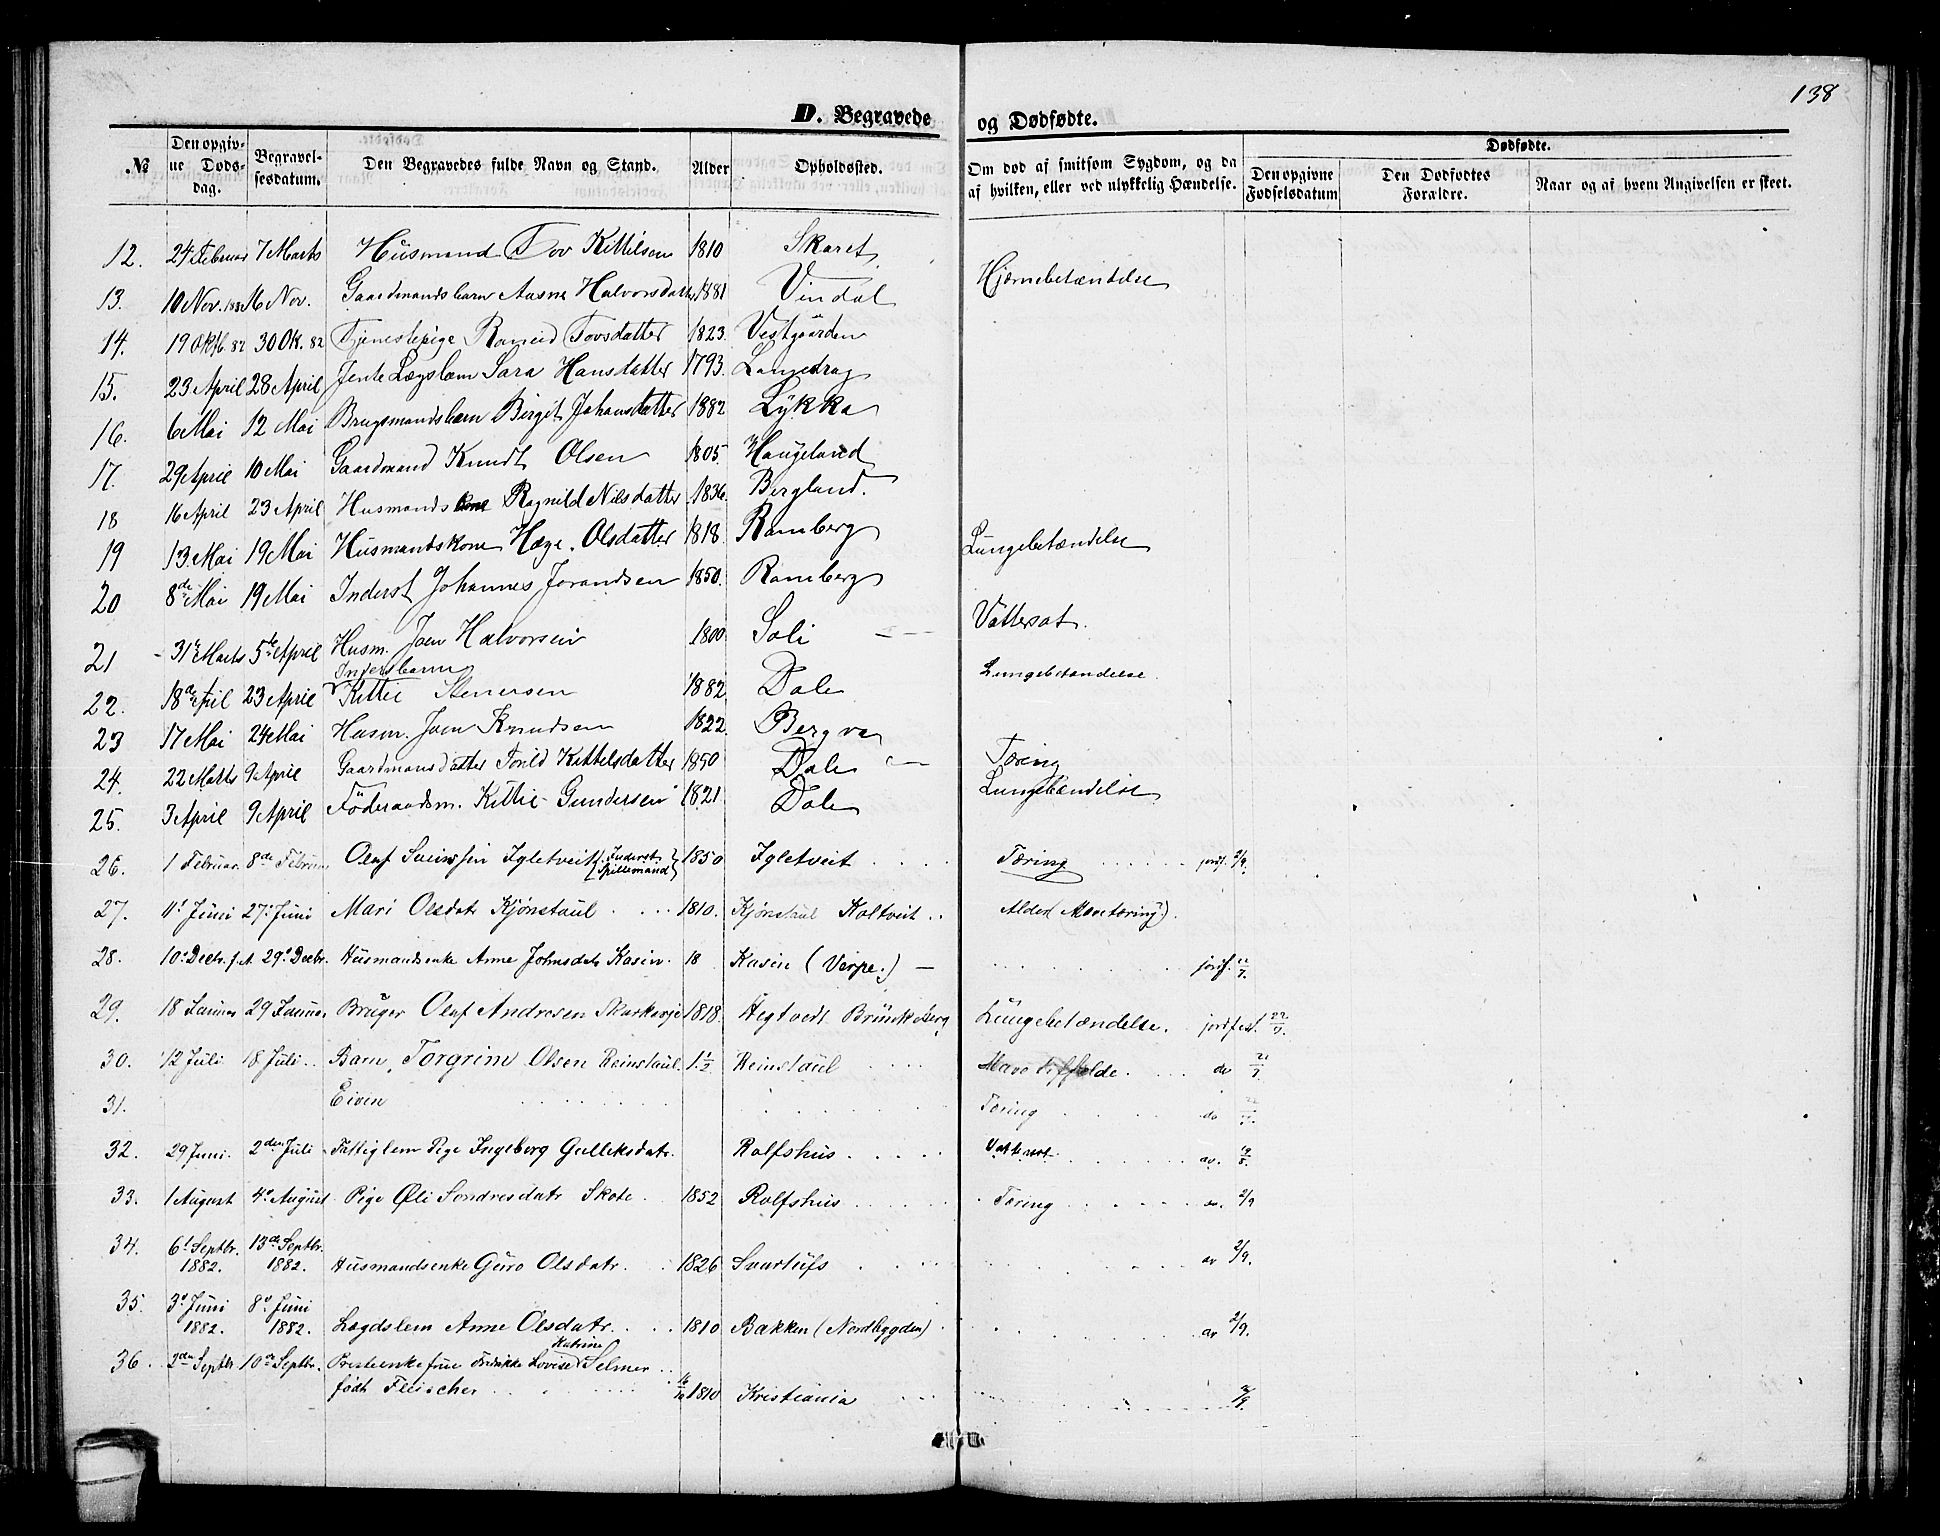 138
D. Begravede og Dødfødte.
№ Den opgivne Døds-dag. Begravelsesdatum. Den Begravedes fulde Navn og Stand. Alder Opholdssted. Om død af smitsom Sygdom, og da af hvilken, eller ved ulykkelig Hændelse. Dødfødte.
Den opgivne Fødselsdatum Den Dødfødtes Forældre. Naar og af hvem Angivelsen er skeet.
12. 24 Februar 7 Marts Husmand Tov Kittilsen 1810 Skaret
13. 10 Nov. 16 Nov. Gaardmandsbarn Aasne Halvorsdatter 1881 Vindal Hjernebetændelse
14. 19 Oktb. 82 30 Ok. 82 Tjenestepige Tovsdatter 1823. Vestgaarden
15. 23 April 28 April Jente Lægslem Sara Hansdatter 1793. Langedrag
16. 6 Mai 12 Mai Brugsmandsbarn Birgit Johansdatter 1882 Lykka
17. 29 April 10 Mai Gaardmand Knudt Olsen 1805 Haugeland
18 16 April 23 April Husmandskone Ragnild Nilsdatter 1836. Bergland.
19 13 Mai 19 Mai Husmandskone Hæge. Olsdatter 1818. Ramberg Lungebetændelse
20 8de Mai 19 Mai Inderst Johannes Jorandsen 1850. Ramberg
21 31te Marts 5te April Husm. Joen Halvorsen 1800 Soli Vattersot.
22. 18de April 23 April Inderstbarn Kittil Stenersen 1882 Dale Lungebetændelse.
23 17 Mai 24 Mai Husm. Joen Knudsen 1822. Bergva
24. 22 Marts 9 April Gaardmansdatter Torild Kittelsdatter 1850 Dale Tæring
25. 3 April 9 April Föderaadsm. Kittil Gundersen 1821 Dale Lungebtændelse
26. 1 Februar 8de Februar Olaf Sveinssen Igletveit (Inderst Spillemand) 1850 Igletveit Tæring jordf. 2/9.
27. 11t Juni 27. Juni Mari Olsdatr Kjønstaul 1810. Kjønstaul Koltveit Alder (Mavetæring).
28. 10de Decbr. f. A. 29de Decbr. Husmandsenke Anne Johnsdatr Kasin. 18 Kasin (Verpe.) jordf.
29. 18 Januar 29 Januar Bruger Olaf Andresen 1818. Hegtvedt Brunkeberg Lungebetændelse. jordfest.
30. 12 Juli 18 Juli Barn, Torgrim Olsen Reinstaul. 1 1/2 Reinstaul do
31. Eiven Tæring do
32. 29 Juni. 2den Juli Fattiglem Pige Ingeberg Gulleksdatr. Rolfshus Vattersot
33. 1 August 4de August Pige Øli Sondresdatr Skote 1852 Rolfshus Tæring 2/9
34. 6t Septbr. 1882. 13de Septbr. 1882. Husmandsenke Guro Olsdatr. 1826 Svartufs 2/9.
35. 3de Juni 1882. 8de Juni 1882. Lægdslem Anne Olsdatr. 1810 Bakken (Nordbygden) 2/9.
36. 2den Septbr 10de Septbr. Presteenkefrue Fredrikke Lovise Katrine Selmer
født Fleischer 1810 Kristiania